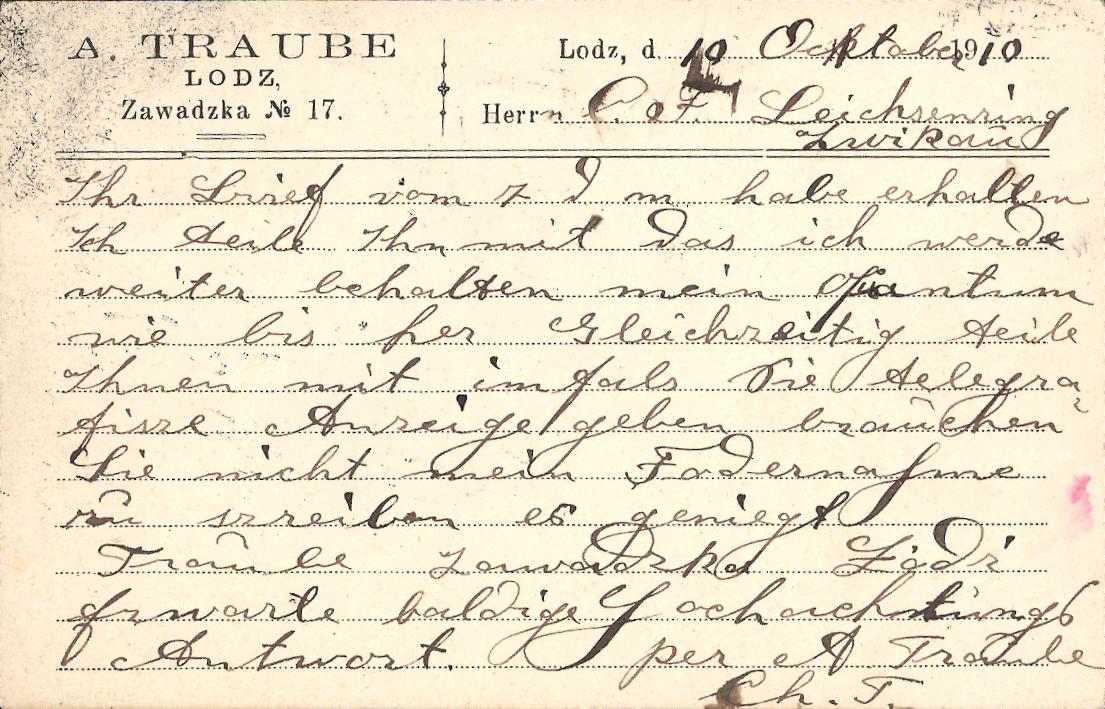 A. TRAUBE
LODZ,
Zawadzka № 17.
Lodz, d. 10 Ocktaber 1910
Herrn C. F. Leichsenring
Zwikau
Ihr Brief vom 7 d m habe erhalten
Ich teile Ihn mit das ich werde
weiter behalten mein Quantum
wie bis her Gleichzeitig teile
Ihnen mit im fals Sie telegra-
fisze Anzeige geben brauchen
Sie nicht mein Fodernahme
zu szreiben es geniegt
Traube Zawadzka Lodz
Erwarte baldige Hochachtungs
Antwort. per A Traube
Ch. T.